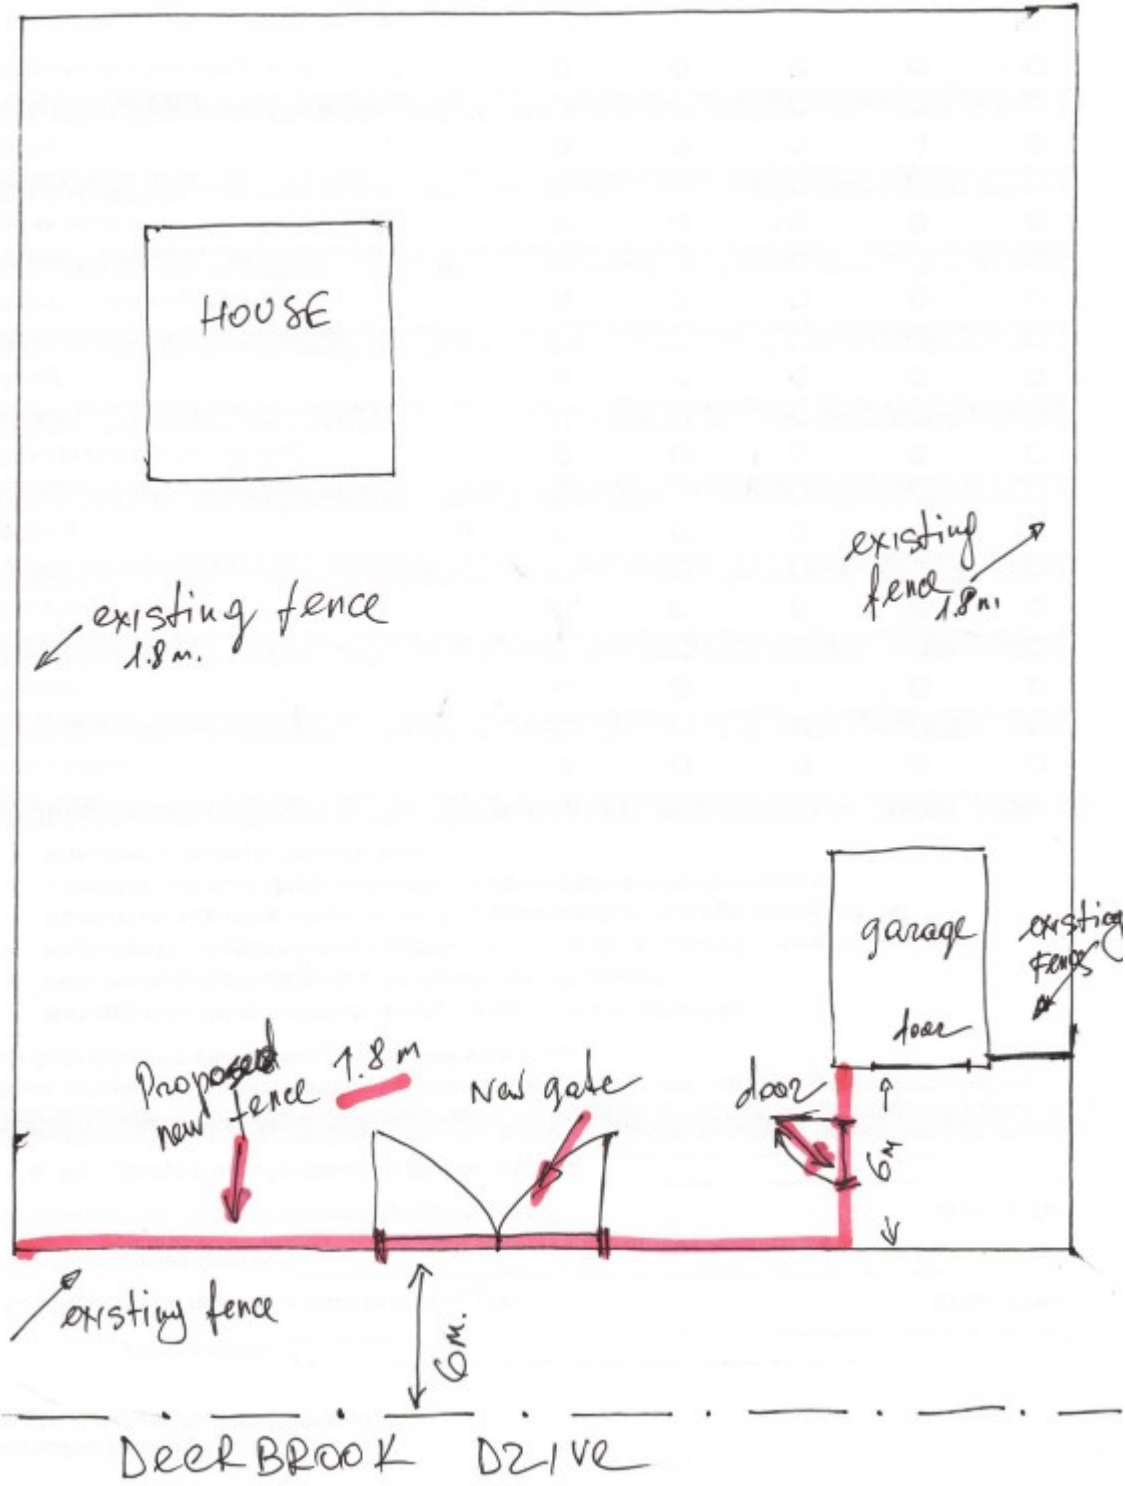 HOUSE
existing
fence 1.8 m.
existing fence
1.8 m.
garage
door
existing
Fence
Proposed
new fence
1.8 m
New gate
door
6m
existing fence
6m.
DEERBROOK DRIVE